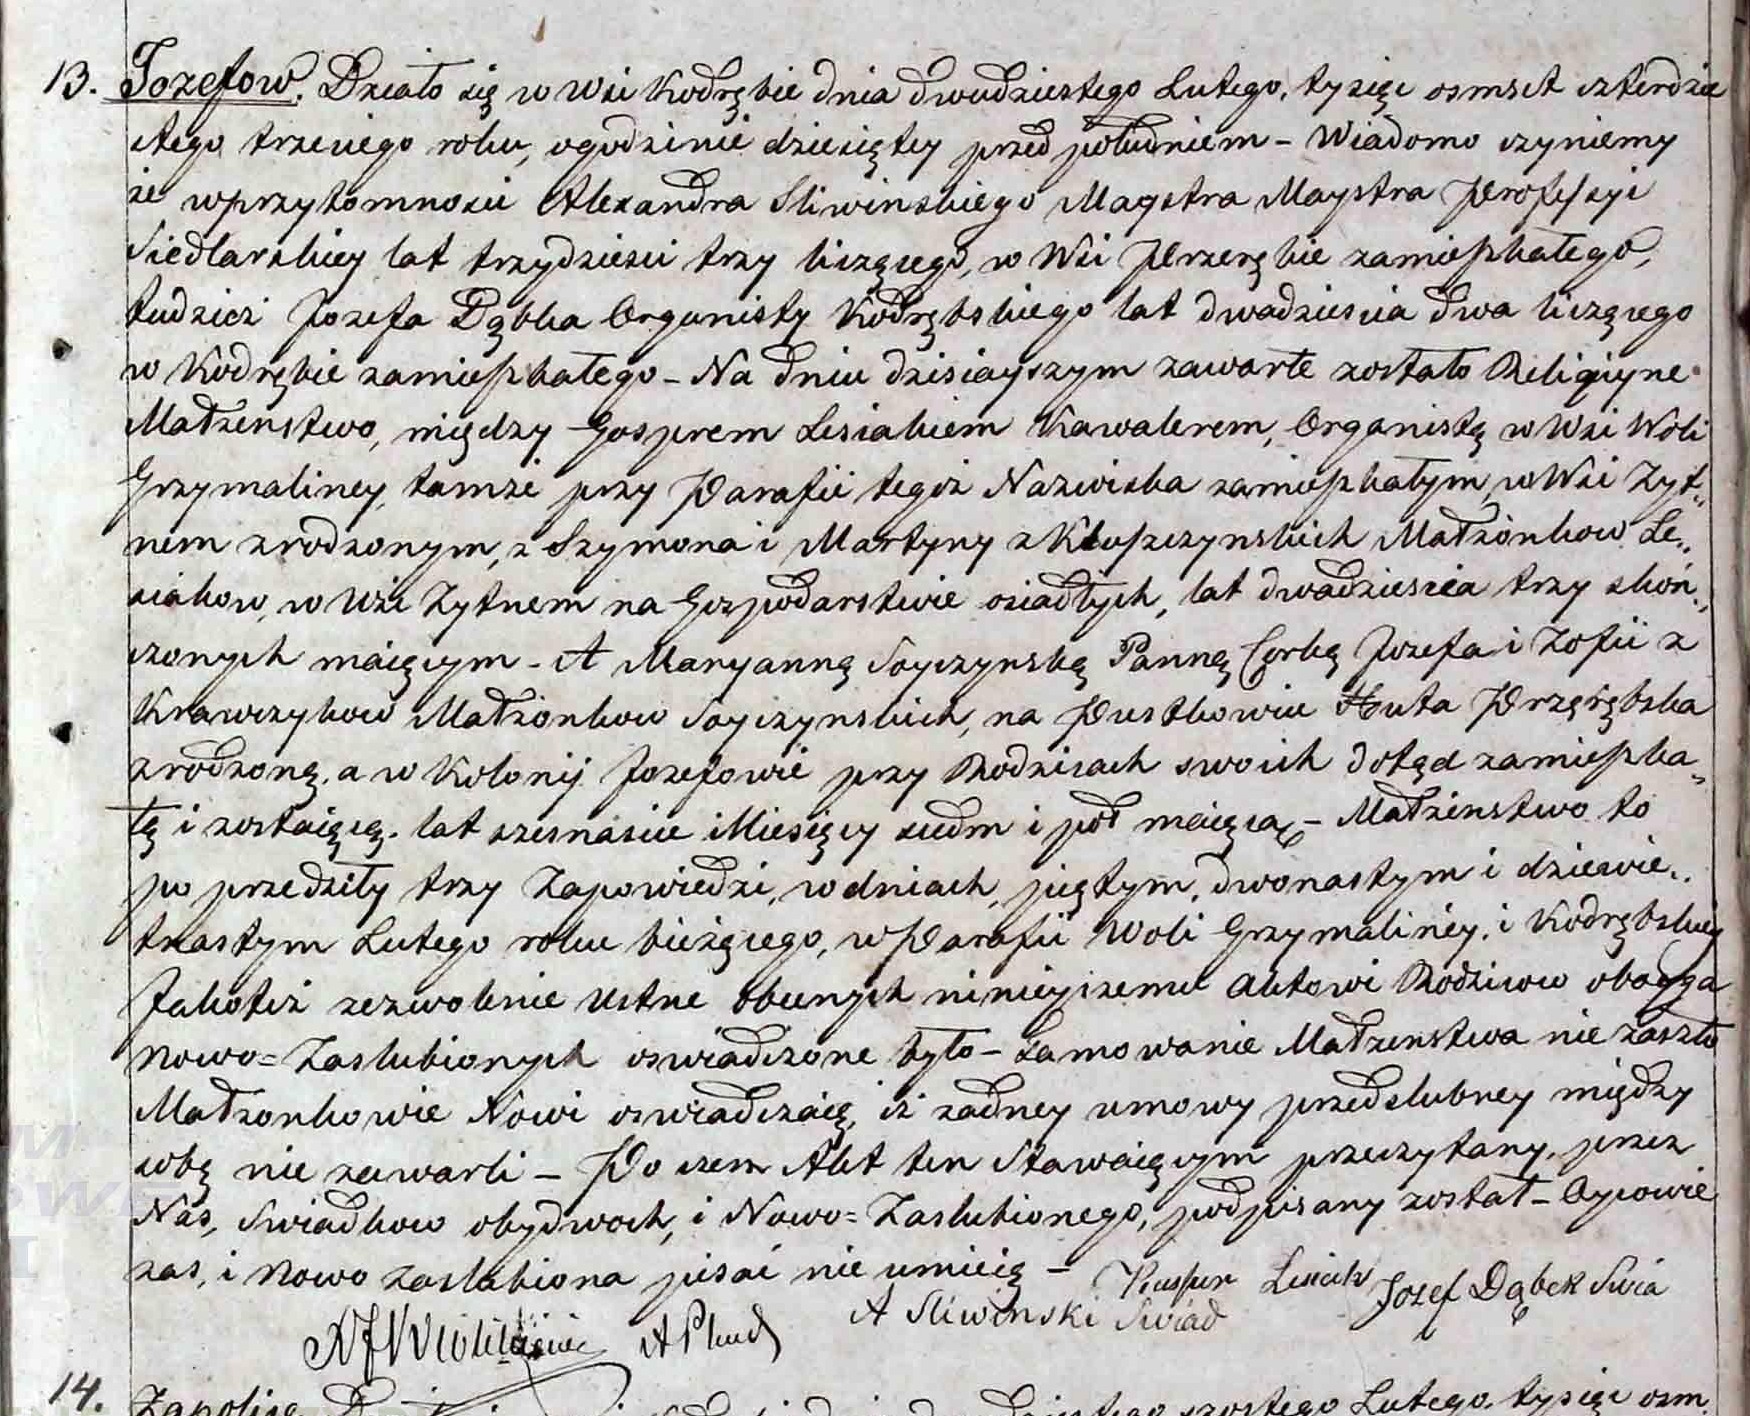 13. Jozefow. Działo się w Wsi Kodrębie dnia dwudziestego Lutego, tysiąc osmset czterdzie
stego trzeciego roku, ogodzinie dziesiątey przed południem – Wiadomo czyniemy
że wprzytomnosci Alexandra Sliwinskiego Magstra Maystra Professyi
Siedlarskiey lat trzydziesci trzy liczącego, w Wsi Przerębie zamieszkałego,
tudzież Jozefa Dąbka Organisty Kodrębskiego lat dwadziescia dwa liczącego
w Kodrębie zamieszkałego – Na dniu dzisiayszym zawarte zostało Religiyne
Małzenstwo, między Gosprem Lesiakiem Kawalerem, Organistą w Wsi Woli
Grzymaliney, tamże przy Parafii tegoż Nazwiska zamieszkałym, w Wsi Zyt„
nem zrodzonym, z Szymona i Martyny z Kłupszczynskich Małżonkow Le„
siakow, w Wsi Zytnem na Gospodarstwie osiadłych, lat dwadziescia trzy skoń„
czonych maiącym – A Maryanną Soyczynską Panną Corką Jozefa i Zofii z
Krawczykow Małżonkow Soyczynskich, na Pustkowiu Huta Przerębska
zrodzoną, a w Kolonij Jozefowie przy Rodzicach swoich dotąd zamieszka„
łą i zostaiącą. lat szesnascie Miesięcy siedm i poł maiącą – Małżenstwo to
po przedziły trzy Zapowiedzi, w dniach, piątym, dwonastym i dziewie„
tnastym Lutego roku bieżącego, w Parafii Woli Grzymaliney, i Kodrębskiey
Jakoteż zezwolenie Ustne obecnych ninieyszemu Aktowi Rodzicow oboyga
nowo=Zaslubionych oswiadczone było – Tamowanie Małzenstwa nie zaszło
Małzonkowie Nowi oswiadczaią, iż żadney umowy przedslubney między
sobą nie zawarli – Po czem Akt ten Stawaiącym przeczytany, przez
Nas, Swiadkow obydwoch, i Nowo=Zaslubionego, podpisany został – Oycowie
zas, i Nowo Zaslubiona pisać nie umieią –
Kasper Lesiak Jozef Dąbek Swia
A Sliwinski Swiad
14. Zapolice
Lutego, tysiąc osm